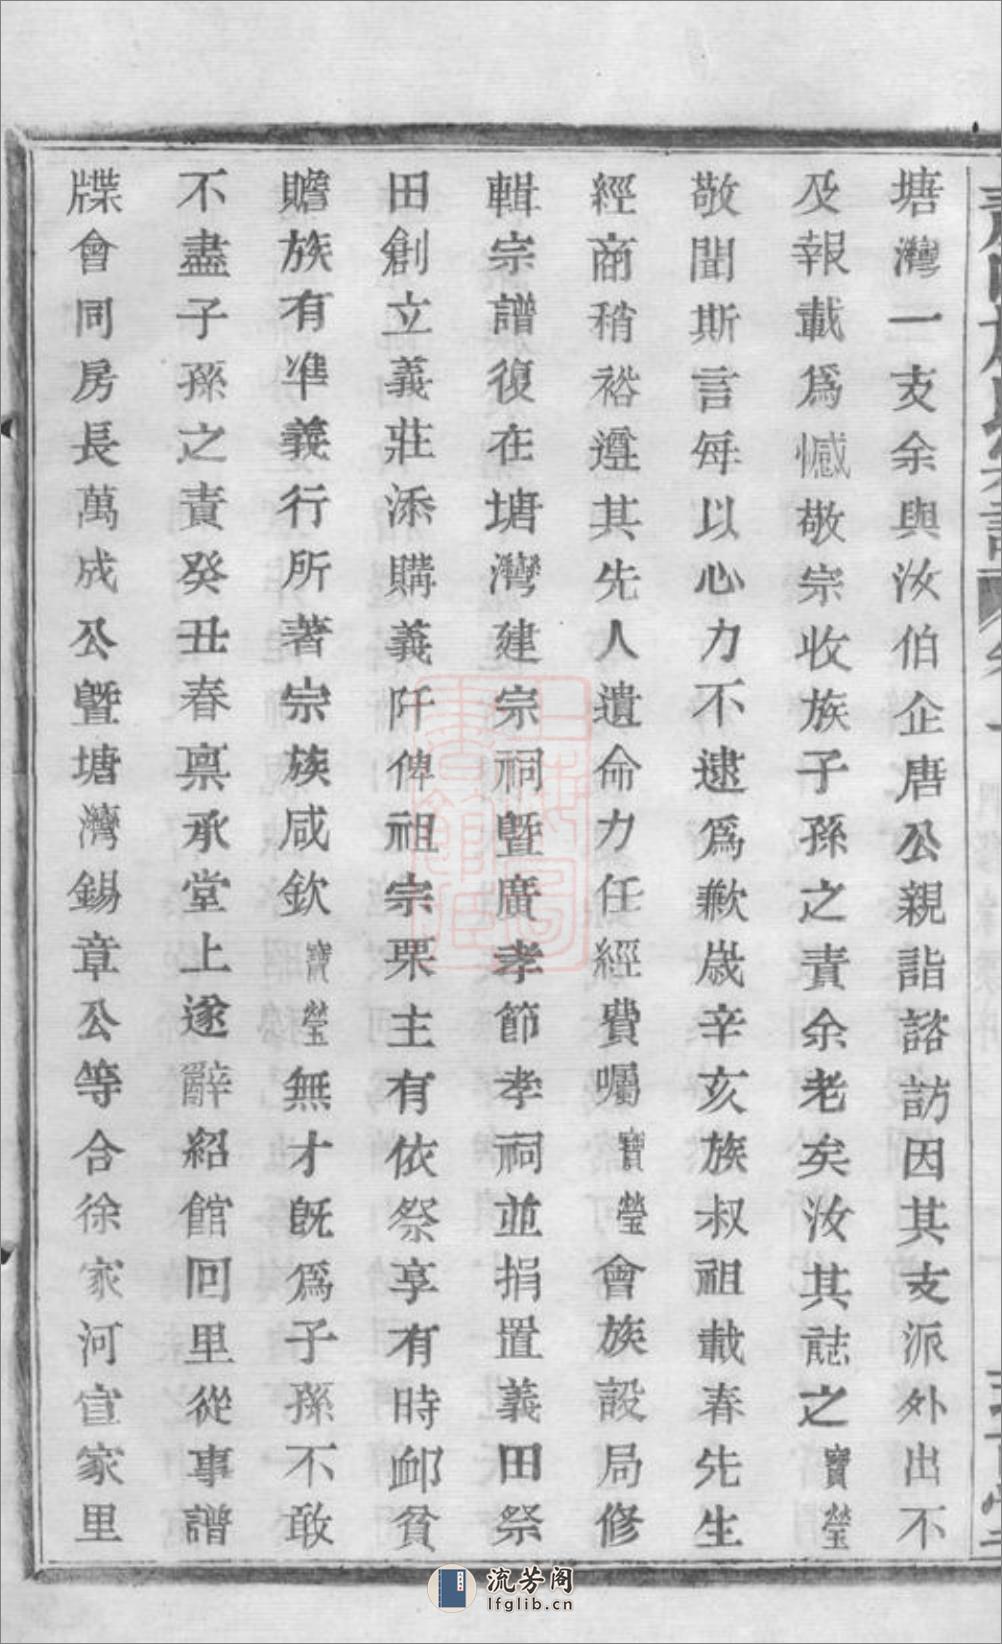 塘灣一支余與汝伯企唐公親詣諮訪因其支派外出不
及報載爲憾敬宗收族子孫之責余老矣汝其誌之寶瑩
敬聞斯言每以心力不逮爲歉歲辛亥族叔祖載春先生
經商稍裕遵其先人遺命力任經費囑寶瑩會族設局修
輯宗譜復在塘灣建宗祠曁廣孝節孝祠並捐置義田祭
田創立義莊添購義阡俾祖宗栗主有依祭享有時卹貧
贍族有凖義行所著宗族咸欽寶瑩無才旣爲子孫不敢
不盡子孫之責癸丑春禀承堂上遂辭紹館回里從事譜
牒會同房長萬成公曁塘灣錫章公等合徐家河宣家里
上海圖書館藏
流芳阁
lfglib.cn